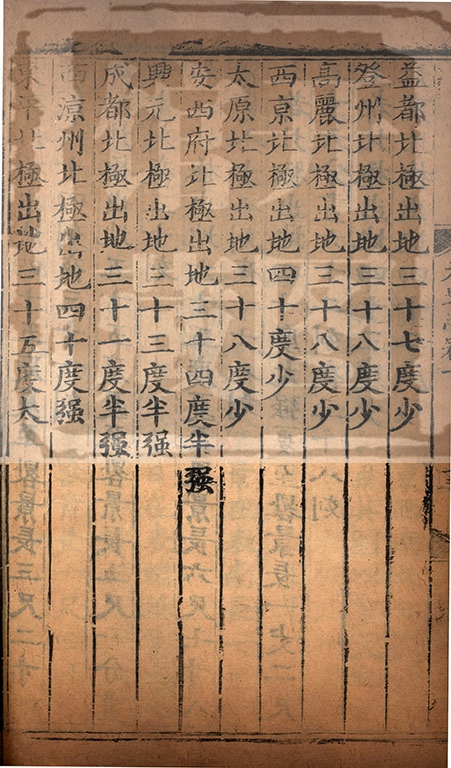 益都北極出地三十七度少
登州北極出地三十八度少
高麗北極出地三十八度少
西京北極出地四十度少
太原北極出地三十八度少
安西府北極出地三十四度半强
興元北極出地三十三度半强
成都北極出地三十一度半强
西涼州北極出地四十度强
東平北極出地三十五度太